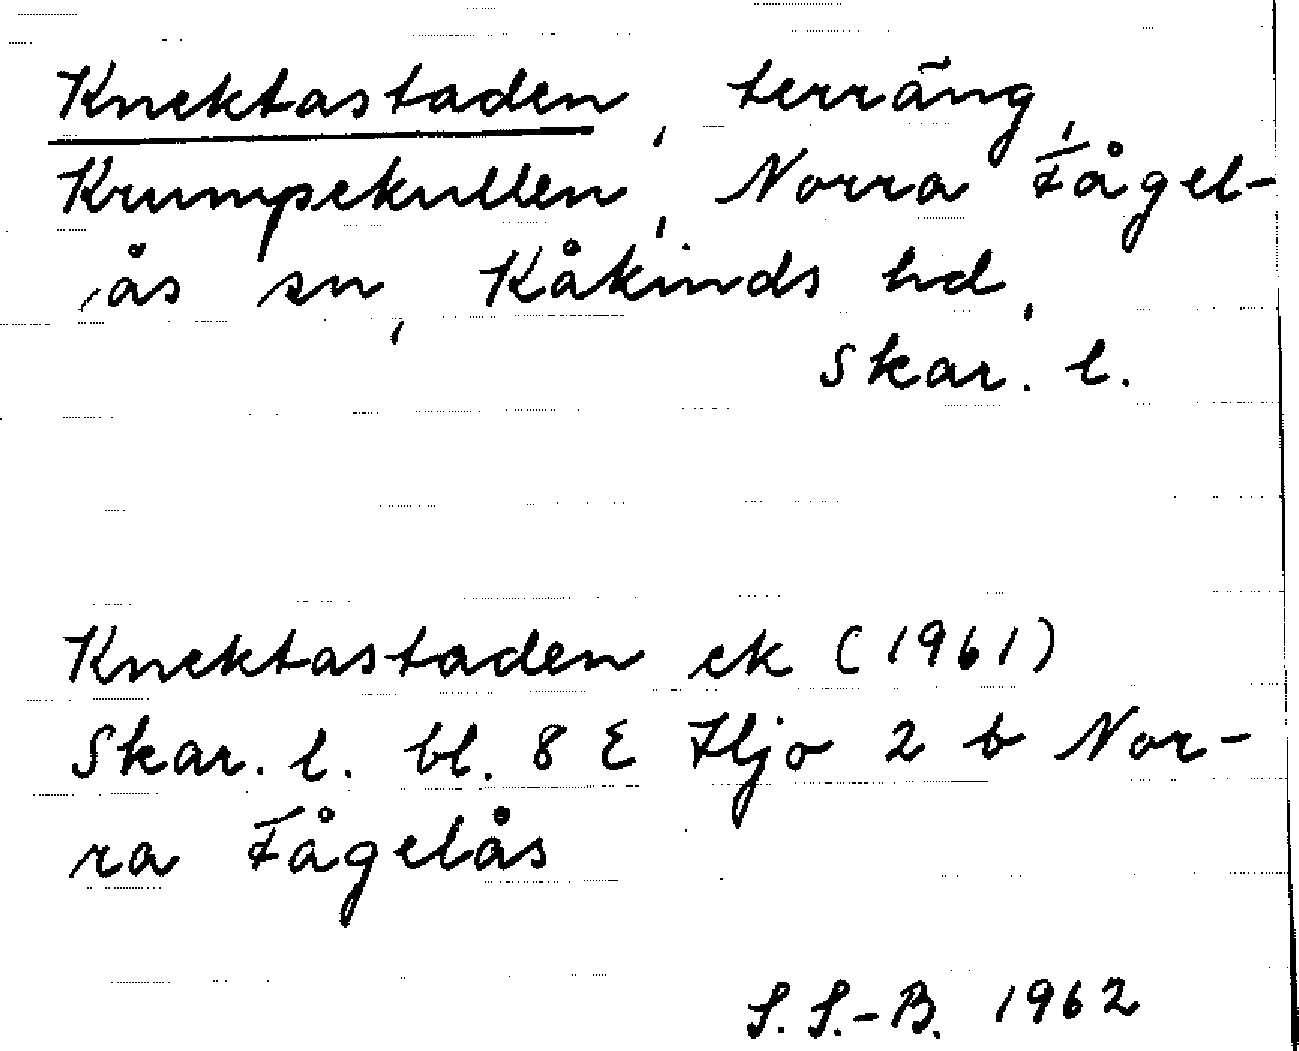 Knektastaden, terräng,
Krumpekullen, Norra Fågel-
ås sn, Kåkinds hd,
Skar. l.
Knektastaden ek (1961)
Skar. l. bl. 8 E Hjo 2 b Nor-
ra Fågelås
S. S.-B. 1962